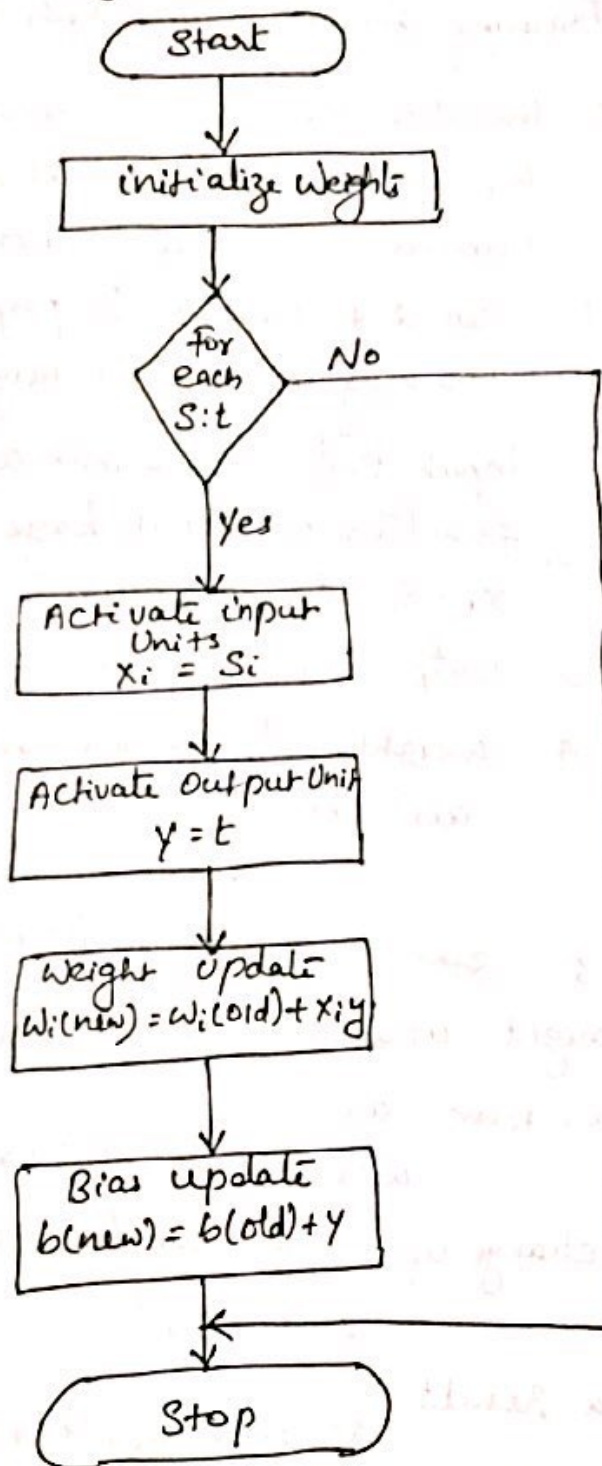 Start
initialize weights
For
each
S:t
No
Yes
Activate input
Units
xi = Si
Activate Output Unit
y = t
Weight update
wi(new) = wi(old) + xi y
Bias update
b(new) = b(old) + y
Stop